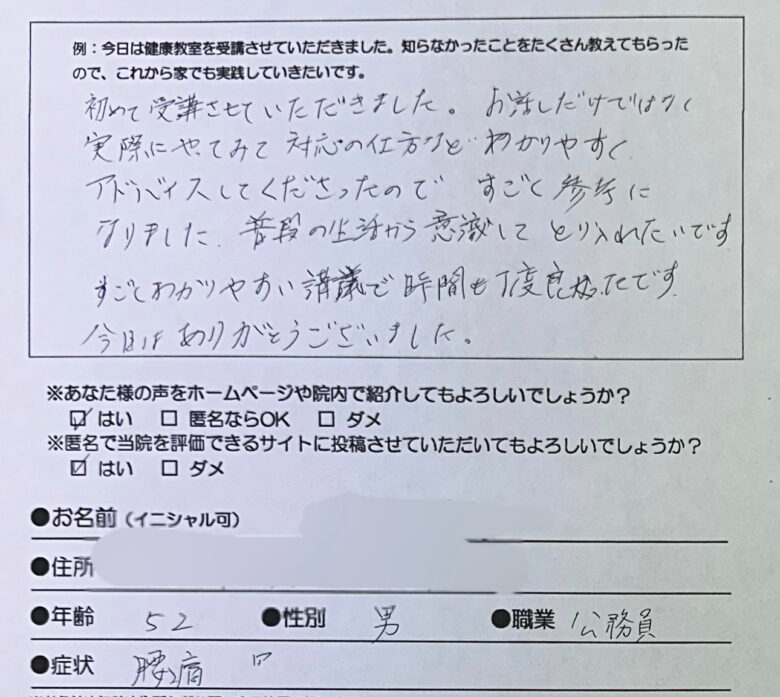 例：今日は健康教室を受講させていただきました。知らなかったことをたくさん教えてもらった
ので、これから家でも実践していきたいです。
初めて受講させていただきました。お話しだけではなく
実際にやってみて対応の仕方などわかりやすく
アドバイスしてくださったのですごく参考に
なりました。普段の生活から意識してとり入れたいです
すごくわかりやすい講義で時間も丁度良かったです
今日はありがとうございました。
※あなた様の声をホームページや院内で紹介してもよろしいでしょうか？
☑ はい □ 匿名ならOK □ ダメ
※匿名で当院を評価できるサイトに投稿させていただいてもよろしいでしょうか？
☑ はい □ ダメ
●お名前（イニシャル可）
●住所
●年齢 52 ●性別 男 ●職業 公務員
●症状 腰痛